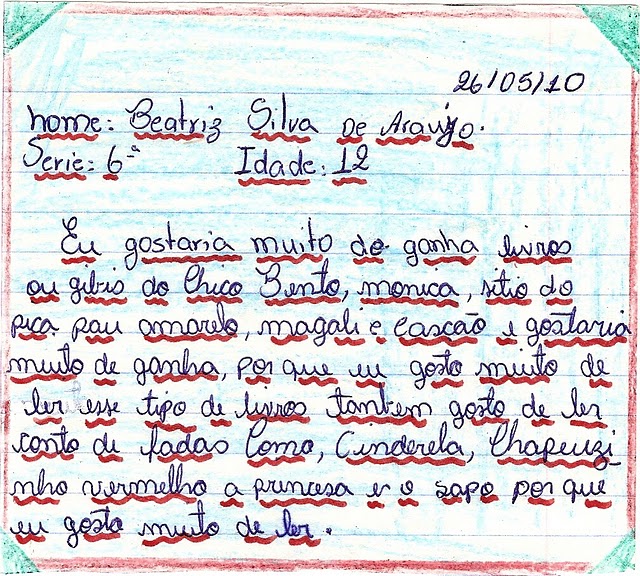 26/05/10
nome: Beatriz Silva de Araújo.
Serie: 6ª Idade: 12
Eu gostaria muito de ganha livros
ou gibis do Chico Bento, monica, sitio do
pica pau amarelo, magali e Cascão e gostaria
muito de ganha, por que eu gosto muito de
ler esse tipo de livros tanbem gosto de ler
conto de fadas Como, Cinderela, Chapeuzi
nho vermelho a princesa e o sapo por que
eu gosto muito de ler.